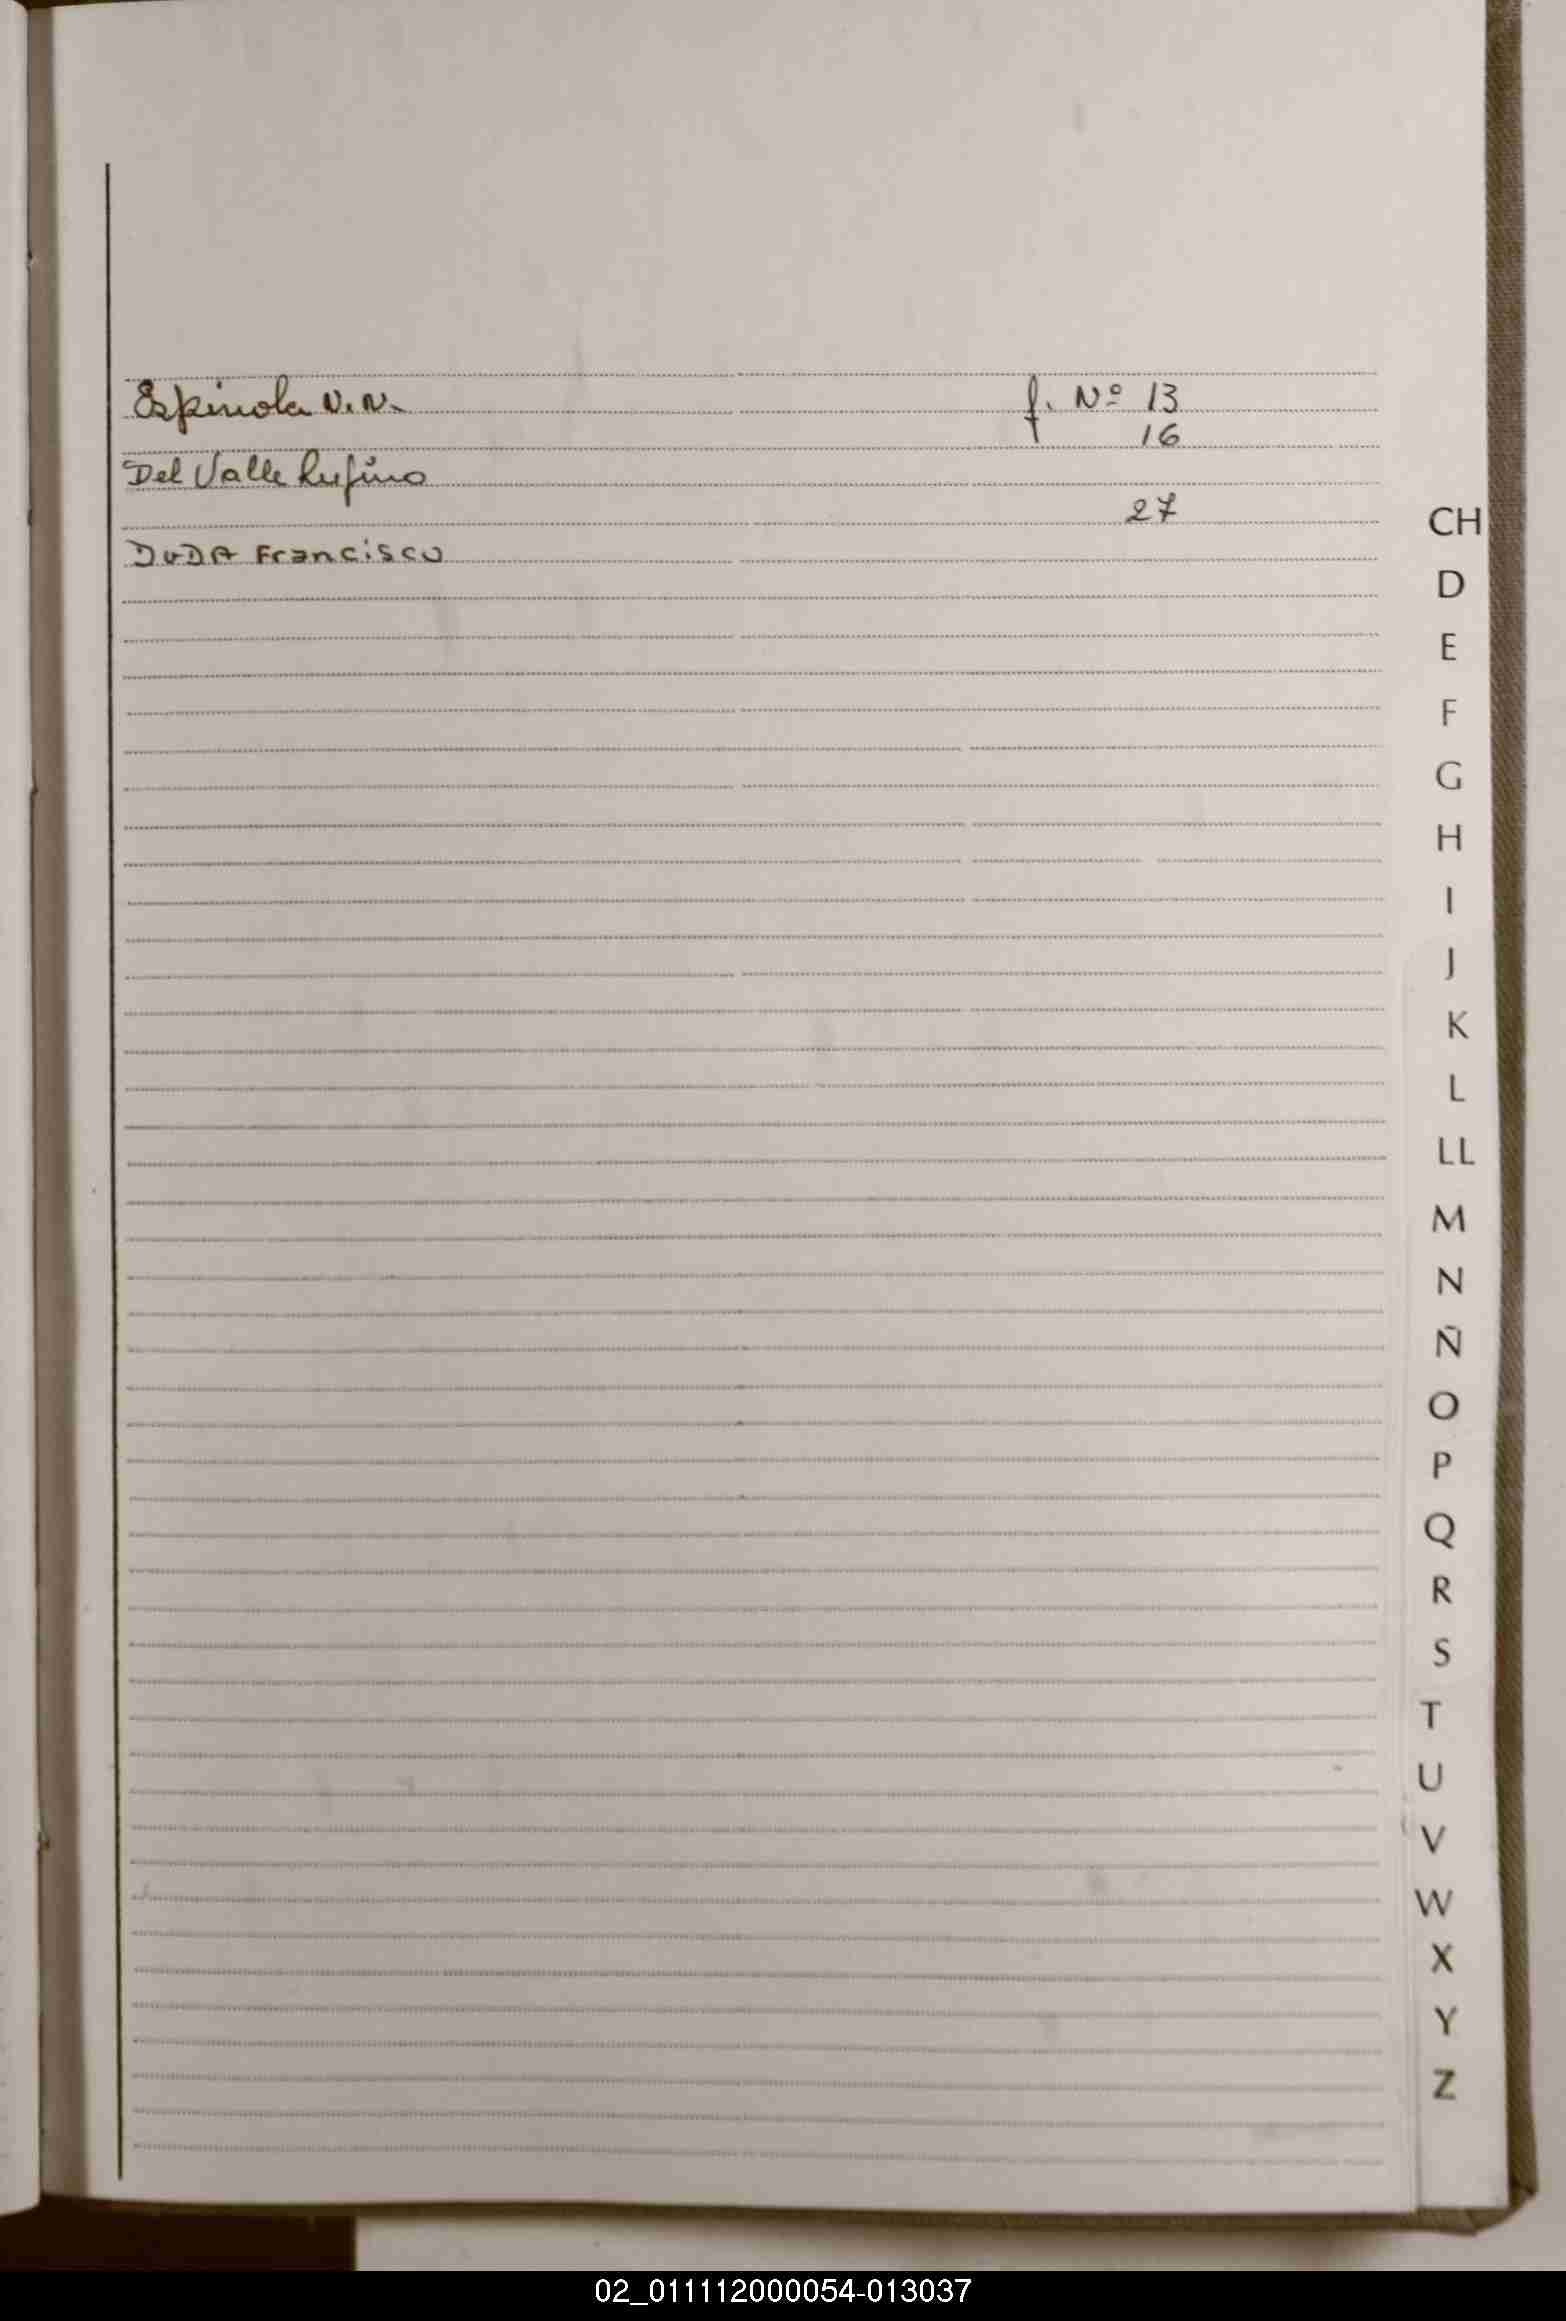 Espinola N.N. f. Nº 13
16
Del Valle Rufino
27
DUDA Francisco
CH
D
E
F
G
H
I
J
K
L
LL
M
N
Ñ
O
P
Q
R
S
T
U
V
W
X
Y
Z
02_011112000054-013037